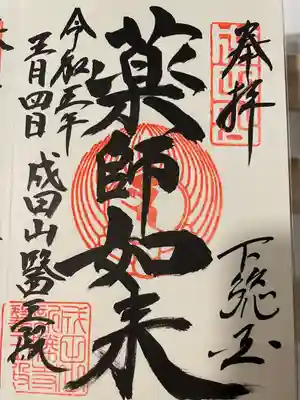 奉拝
下総国
薬師如来
令和五年
五月四日
成田山醫王殿